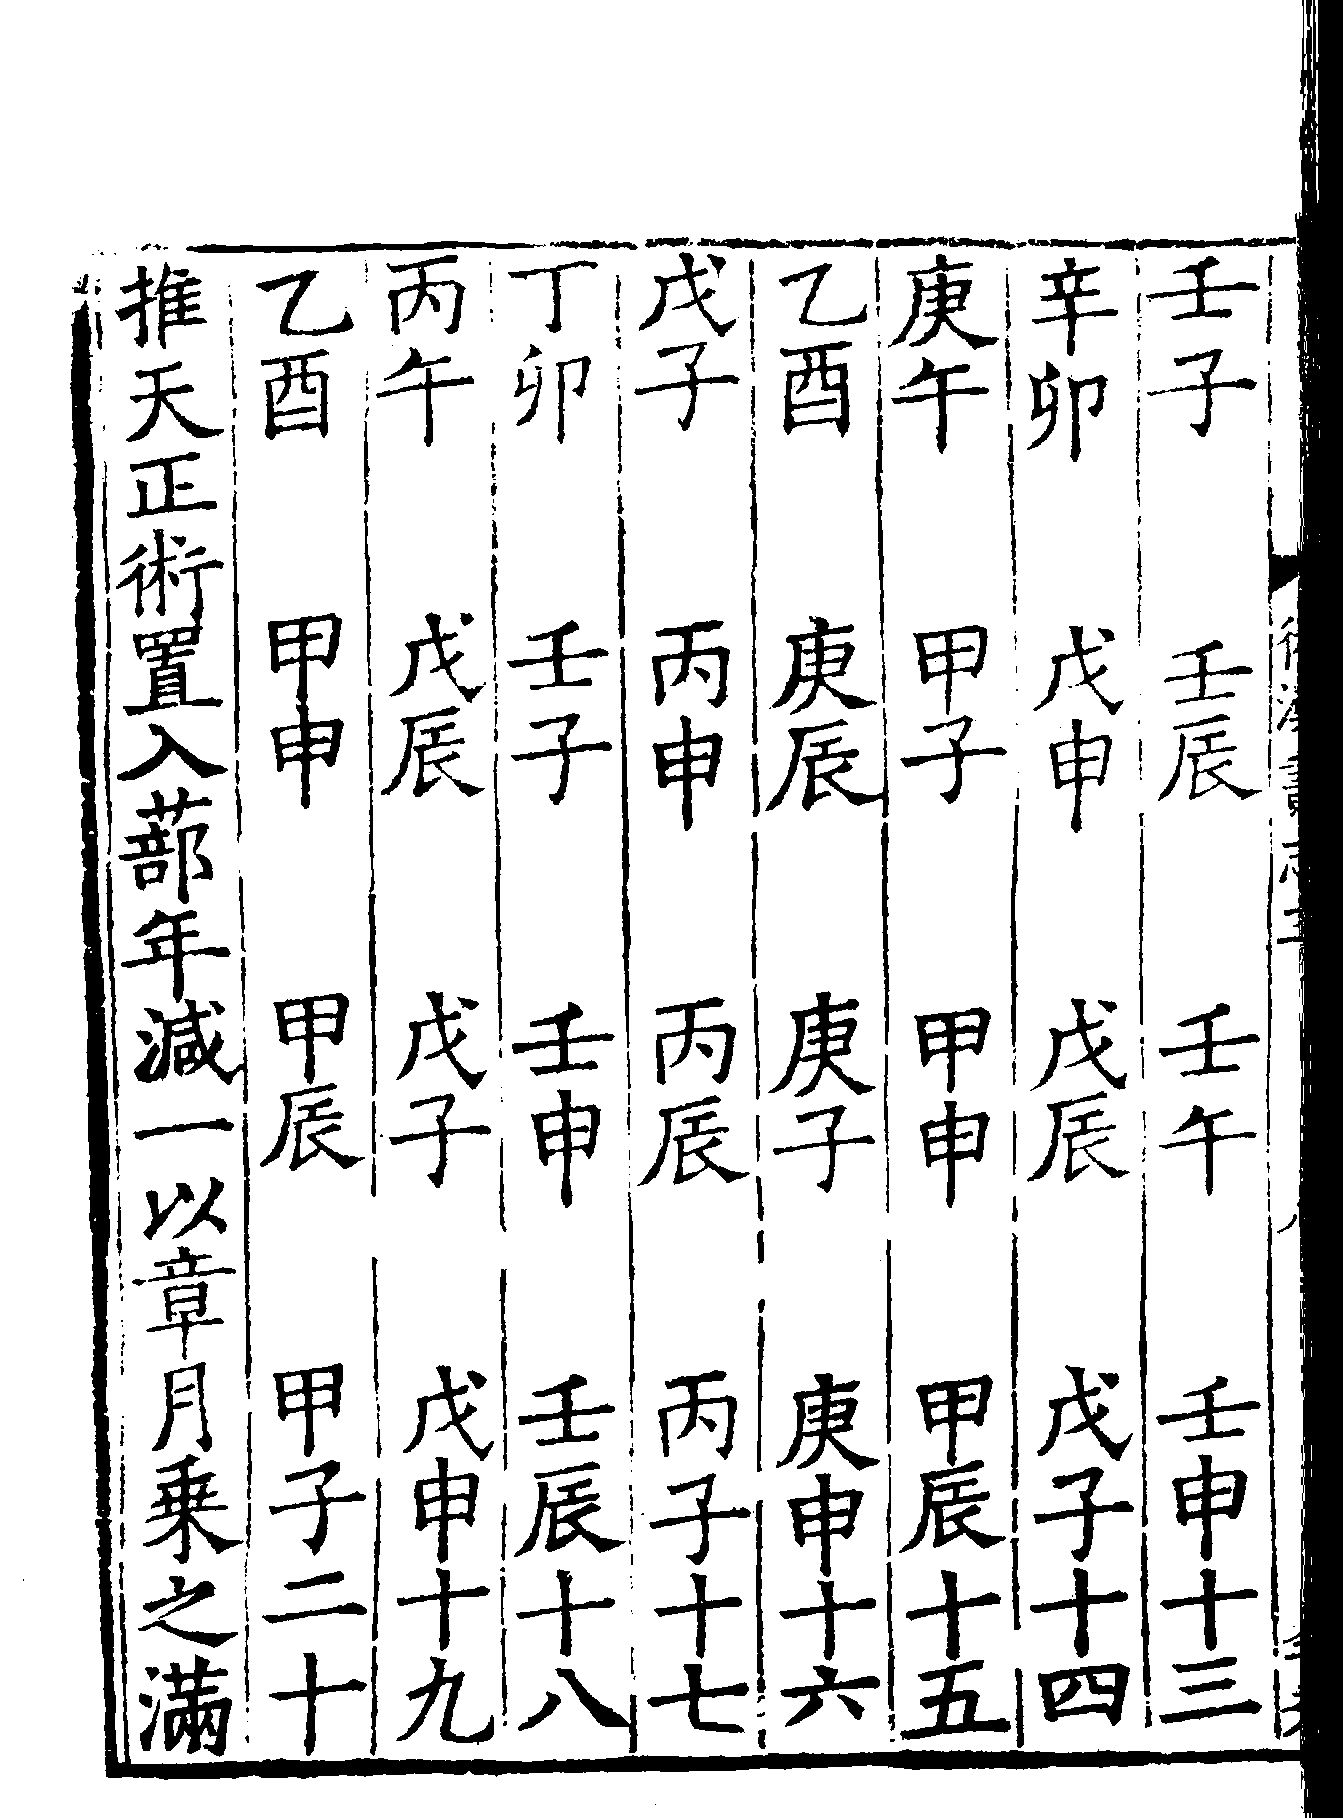 壬子　壬辰　壬午　壬申十三
辛卯　戊申　戊辰　戊子十四
庚午　甲子　甲申　甲辰十五
乙酉　庚辰　庚子　庚申十六
戊子　丙申　丙辰　丙子十七
丁卯　壬子　壬申　壬辰十八
丙午　戊辰　戊子　戊申十九
乙酉　甲申　甲辰　甲子二十
推天正術置入蔀年減一以章月乗之滿